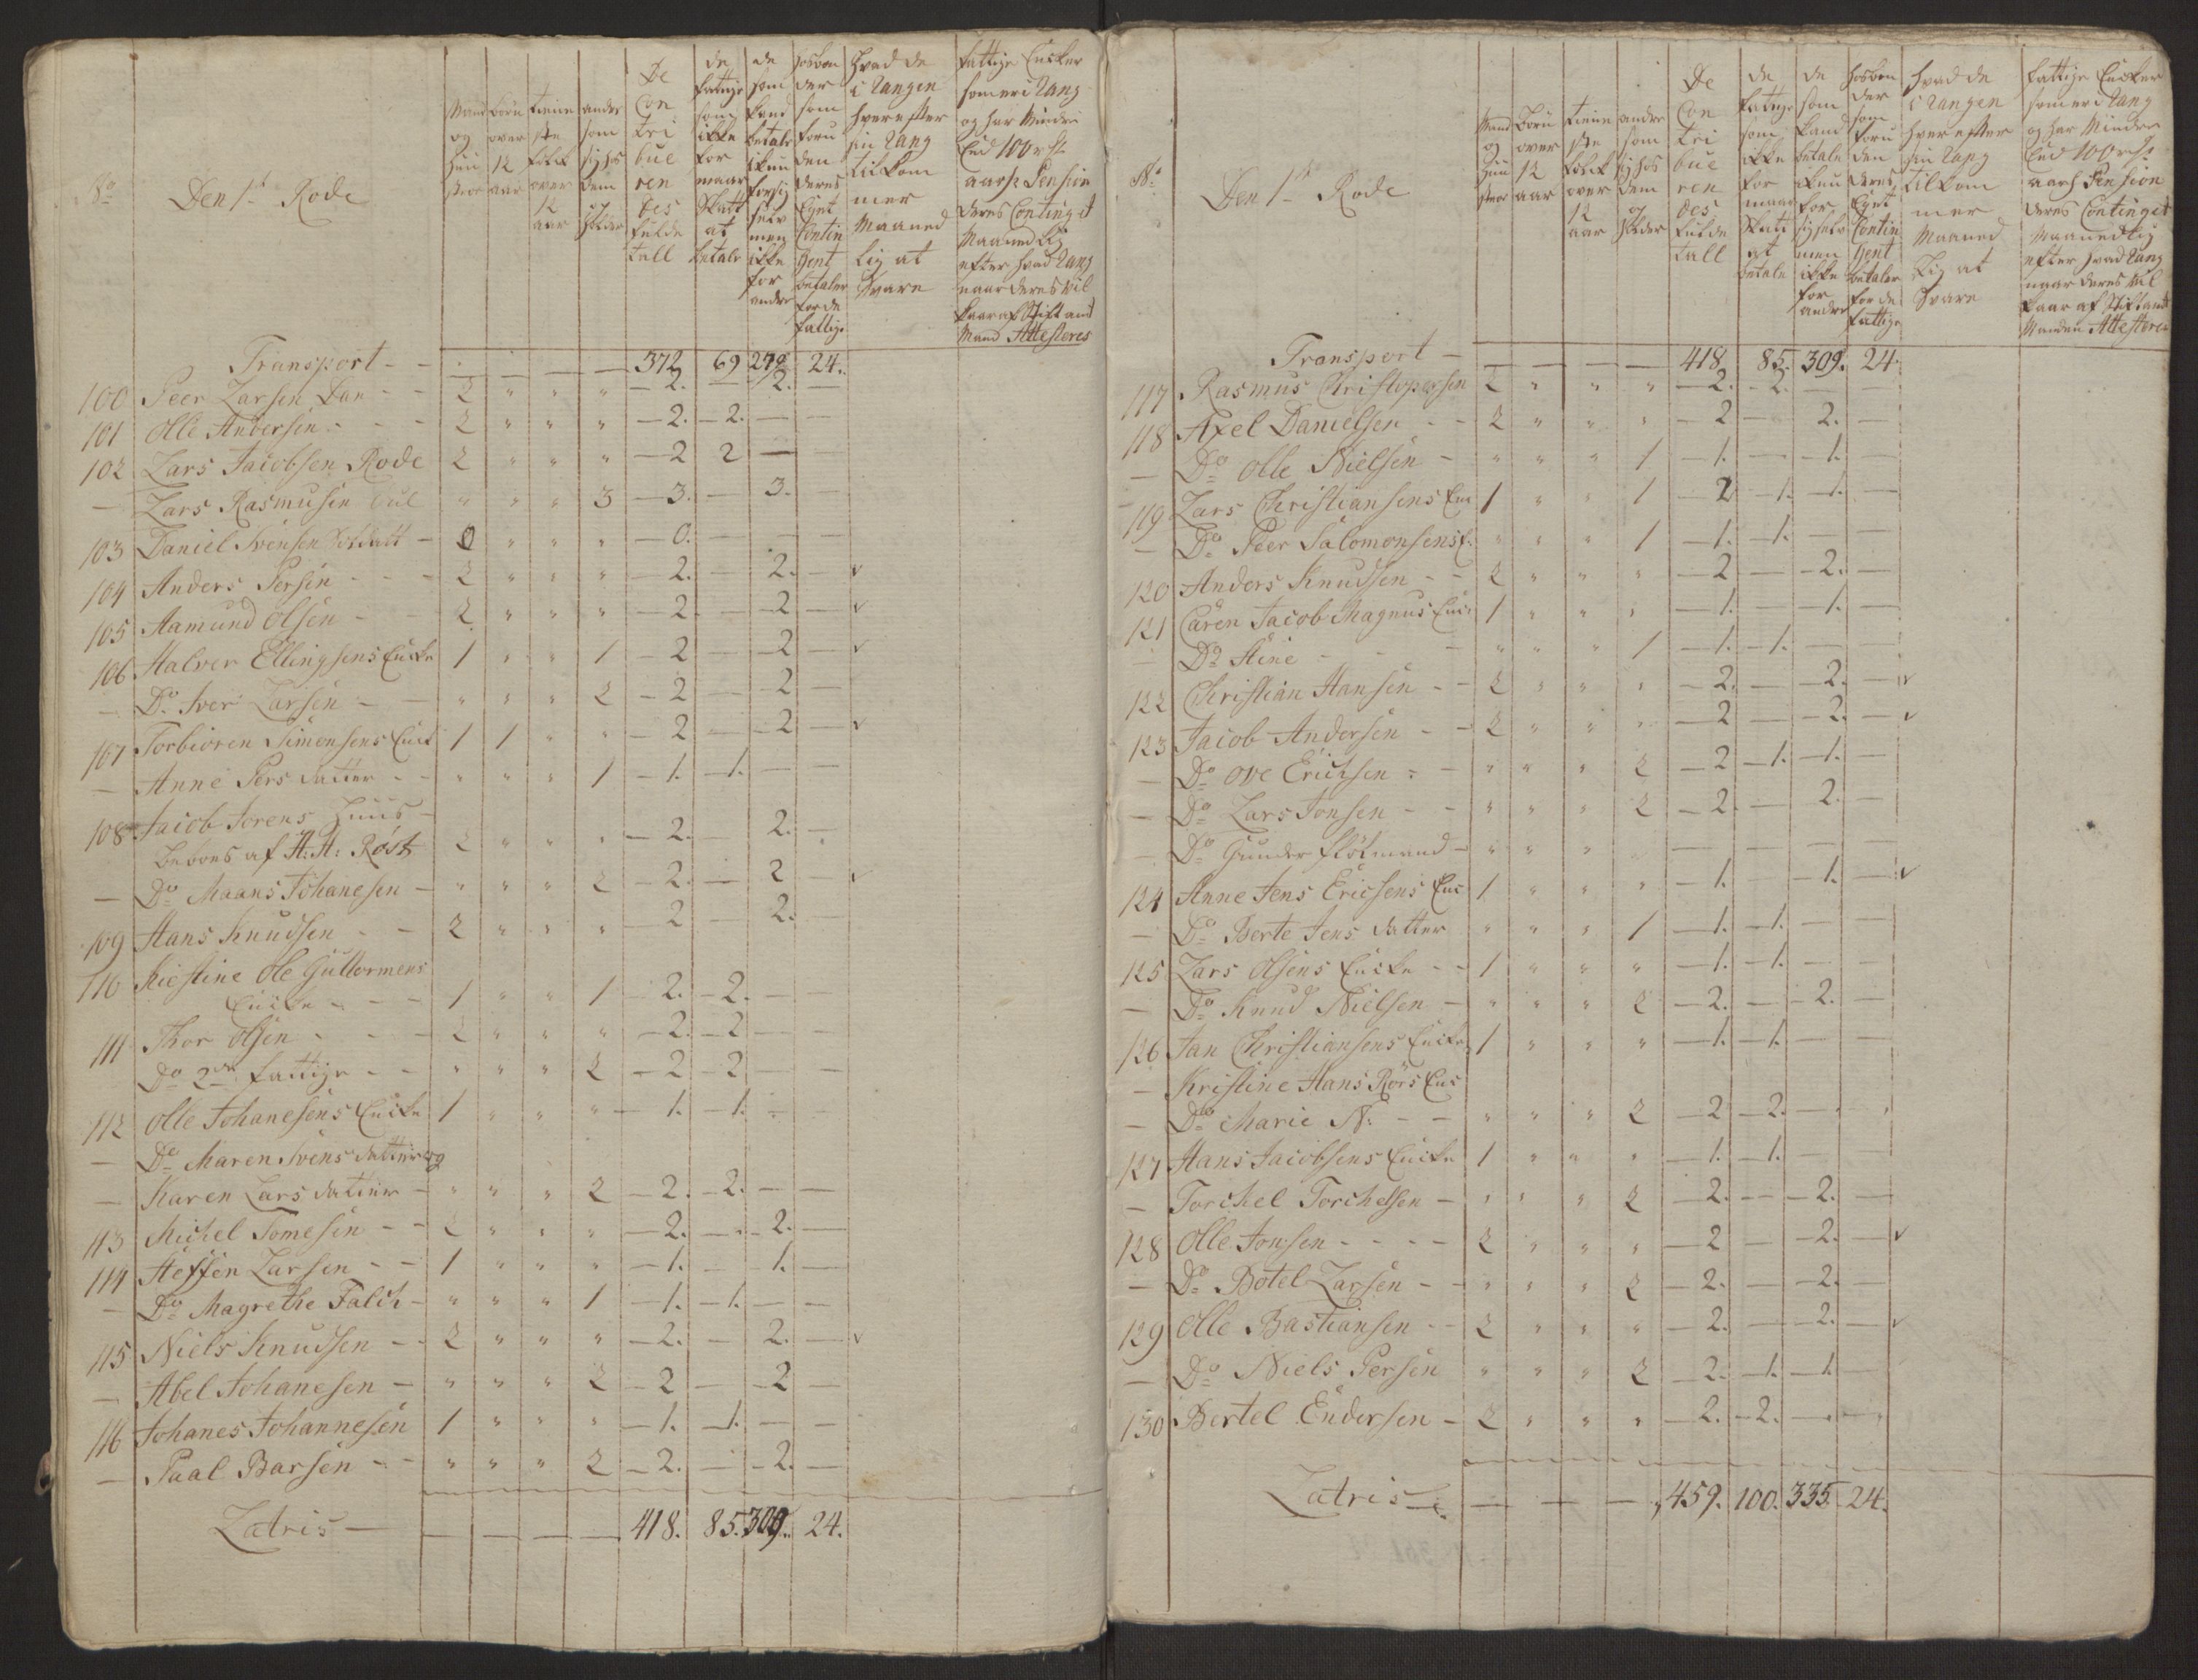 No
Den 1te Rode
Mand og Hustroe
Børn over 12 aar
Tieniste folk over 12 aar
andre som sig hos dem opholder
De Contribuerendes fulde tall
de fattige som ikke formaar Skatt at betale
de som kand betale ikun for sig selv men ikke for andre
hosbonder som foruden deres Eget Contingent betaler for de fattige
hvad de i Rangen hver efter sin Rang tilkommer Maanedlig at Svare
fattige Encker som er i Rang og har Mindre End 100 rdr aarl: Pension deres Continget Maanedlig efter hvad Rang naar deres vilkaar af Stiftamtmand Attesteres
Transport - - 372 69 279 24.
100 Peer Larsen Dan - - 2 " " " 2. - 2. -
101 Olle Andersen - - - 2 " " " 2. 2. - -
102 Lars Jacobsen Rode 2 " " " 2 2 - -
- Lars Rasmusen " " " 3 3. - 3. -
103 Daniel Svensen Soldatt - 0 " " " 0. - - -
104 Anders Persen - - - 2 " " " 2. - 2. - v
105 Aamund Olsen - - 2 " " " 2. - 2 - v
106 Halver Ellingsens Encke 1 " " 1 2 - 2 - v
- Do Iver Larsen - - " " " 2 2 - 2 -
107 Torbioren Simensens Enck 1 1 " " 2 - 2 - v
- Anne Pers datter - - " " " 1 1. 1. - -
108 Jacob Jorens Huus -
beboes af A: A: Röst 2 " " " 2. - 2. -
- Do Maans Johanesen - " " " 2 2. - 2 - v
109 Hans Knudsen - - 2 " " " 2 - 2. -
110 Kiestine Ole Guttormens
Encke - - - 1 " " 1 2. 2. - -
111 Thor Olsen - - - 2 " " " 2. 2 - -
Do 2de fattige - - " " " 2 2 2 - -
112 Olle Johanesens Encke 1 " " " 1. 1. - -
- Do Maren Svens datter og
- Karen Lars datter - " " " 2 2. 2. - -
113 Michel Tomesen - - 2 " " " 2. - 2. -
114 Steffen Larsen - - 1 " " " 1. - 1. -
- Do Magrethe Falch - " " " 1 1. 1. - -
115 Niels Knudsen - - 2 " " " 2. - 2. - v
- Abel Johanesen - " " " 2 2 - 2 -
116 Johanes Johannesen 1 " " " 1. 1. - -
- Paal Barsen - - " " " 2 2. - 2. -
Latris - - - - - 418. 85. 309. 24.
No
Den 1te Rode
Mand og Hustroe
Børn over 12 aar
Tieniste folk over 12 aar
andre som sig hos dem og holder
De Contribuerendes fulde tall
de fattige som ikke formaar Skatt at betale
de som kand betale ikun for sig selv men ikke for andre
hosbonder som foruden deres Eget Contingent betaler for de fattige
hvad de i Rangen hver efter sin Rang tilkommer Maanedlig at Svare
fattige Encker som er i Rang og har Mindre End 100 rdr aarl Pension deres Continget Maanedlig efter hvad Rang naar deres vilkaar af Stiftamtmanden Attesteres
Transport - - - - - 418. 85. 309. 24.
117 Rasmus Christopersen 2 " " " 2. 2. - -
118 Axel Danielsen - - 2 " " " 2 - 2. -
- Do Olle Nielsen - " " " 1 1. - 1. -
119 Lars Christiansens Enc 1 " " 1 2 1. 1. -
- Do Peer Salomonsens E. " " " 1 1. 1. - -
120 Anders Knudsen - - 2 " " " 2 - 2. -
121 Caren Jacob Magnus Enc: 1 " " " 1. - 1. -
- Do Stine - - - " " " 1 1. 1. - -
122 Christian Hansen - - 2 " " " 2. - 2. - v
123 Jacob Andersen - - 2 " " " 2 - 2. - v
- Do Ove Erichsen - - " " " 2 2 1. 1. -
- Do Lars Jonsen - - " " " 2 2. - 2. -
- Do Gunder flötmand - " " " " - - - -
124 Anne Jens Ericsens Enc 1 " " " 1. - 1. - v
- Do Berte Jens datter " " " 1 1. 1. - -
125 Lars Olsens Encke - - 1 " " " 1. 1. - -
- Do Knud Nielsen - " " " 2 2. - 2. -
126 Jan Christiansens Encke 1 " " " 1. 1. - -
- Kristine Hans Rörs Enc
- Do Marie N: - - " " " 2 2 2. - -
127 Hans Jacobsens Encke 1 " " " 1. 1. - -
- Torchel Torchelsen - " " " 2 2. - 2. -
128 Olle Jonsen - - - - 2 " " " 2 - 2. - v
- Do Botel Larsen - - " " " 2 2. - 2. -
129 Olle Bastiansen - - 2 " " " 2. - 2. - v
- Do Niels Persen " " " 2 2. 1. 1. -
130 Bertel Endersen - 2 " " " 2. 2. - -
Latris - - - - 459. 100. 335. 24.